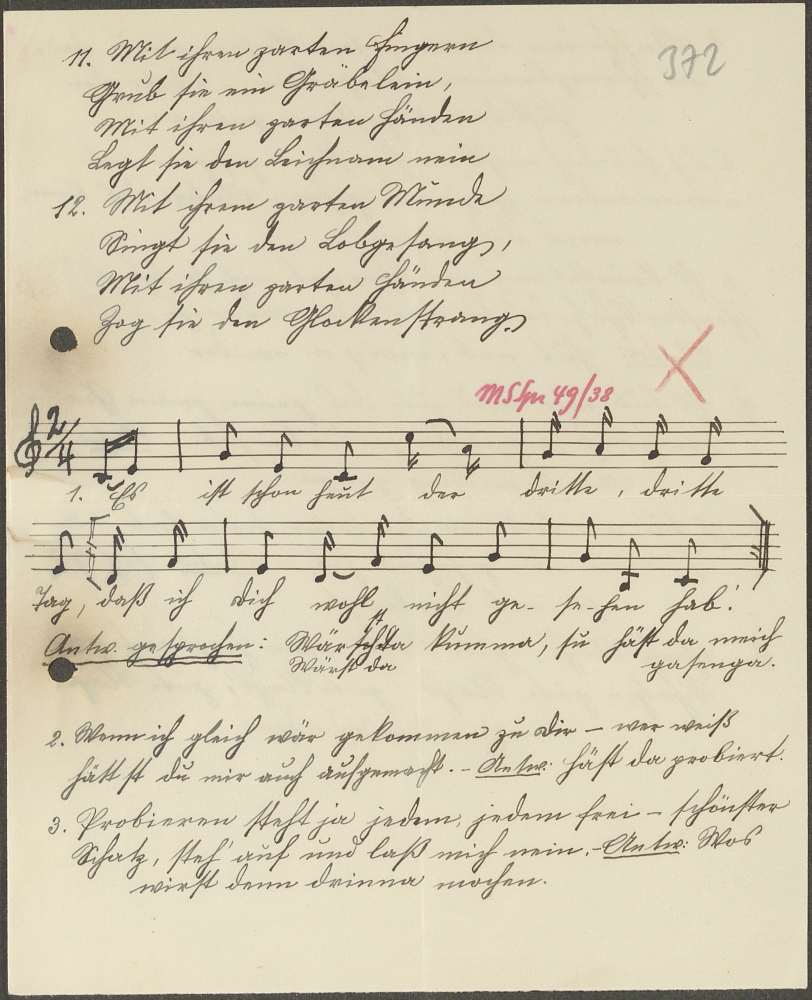 372
11. Mit ihren zarten Fingern
Grub sie ein Gräbelein,
Mit ihren zarten Händen
Legt sie den Leichnam nein
12. Mit ihrem zarten Munde
Singt sie den Lobgesang,
Mit ihren zarten Händen
Zog sie den Glockenstrang.
49/38
2/4
1. Es ist schon heut der dritte, dritte
Tag, daß ich Dich wohl nicht ge-se-hen hab'.
Antw. gesprochen: kumma, su häst da meich
Wärst da gasenga.
2. Wenn ich gleich wär gekommen zu Dir – wer weiß
hättst du mir auch aufgemacht. – Antw: häst da probiert.
3. Probieren steht ja jedem, jedem frei – schönster
Schatz, steh' auf und laß mich nein. – Antw: Wos
wirst denn drinna mochen.